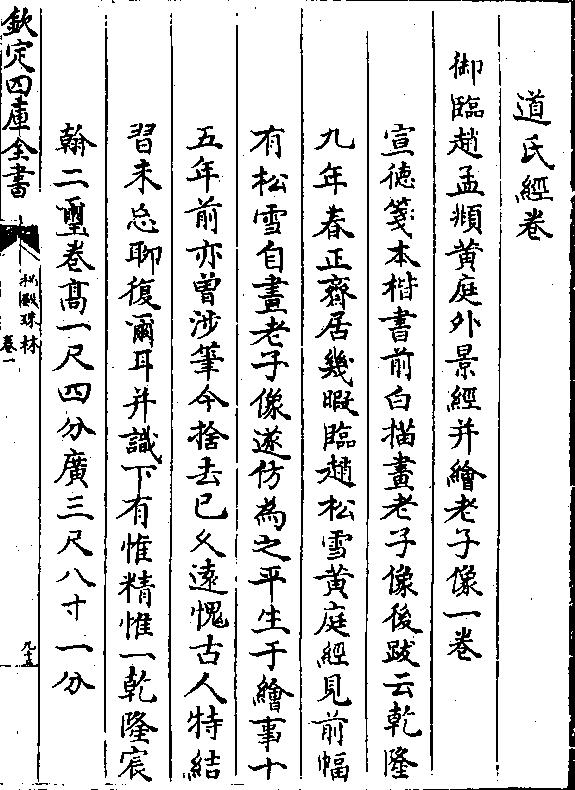 道氏經卷
御臨趙孟頫黄庭外景經并繪老子像一卷
宣徳箋本楷書前白描畫老子像後跋云乾隆
九年春正齋居幾暇臨趙松雪黄庭經見前幅
有松雪自畫老子像遂仿為之平生于繪事十
五年前亦曾涉筆今捨去已乆遠愧古人特結
習未忘聊復爾耳并識下有惟精惟一乾隆宸
翰二璽卷髙一尺四分廣三尺八寸一分
欽定四庫全書
秘殿珠林
卷一